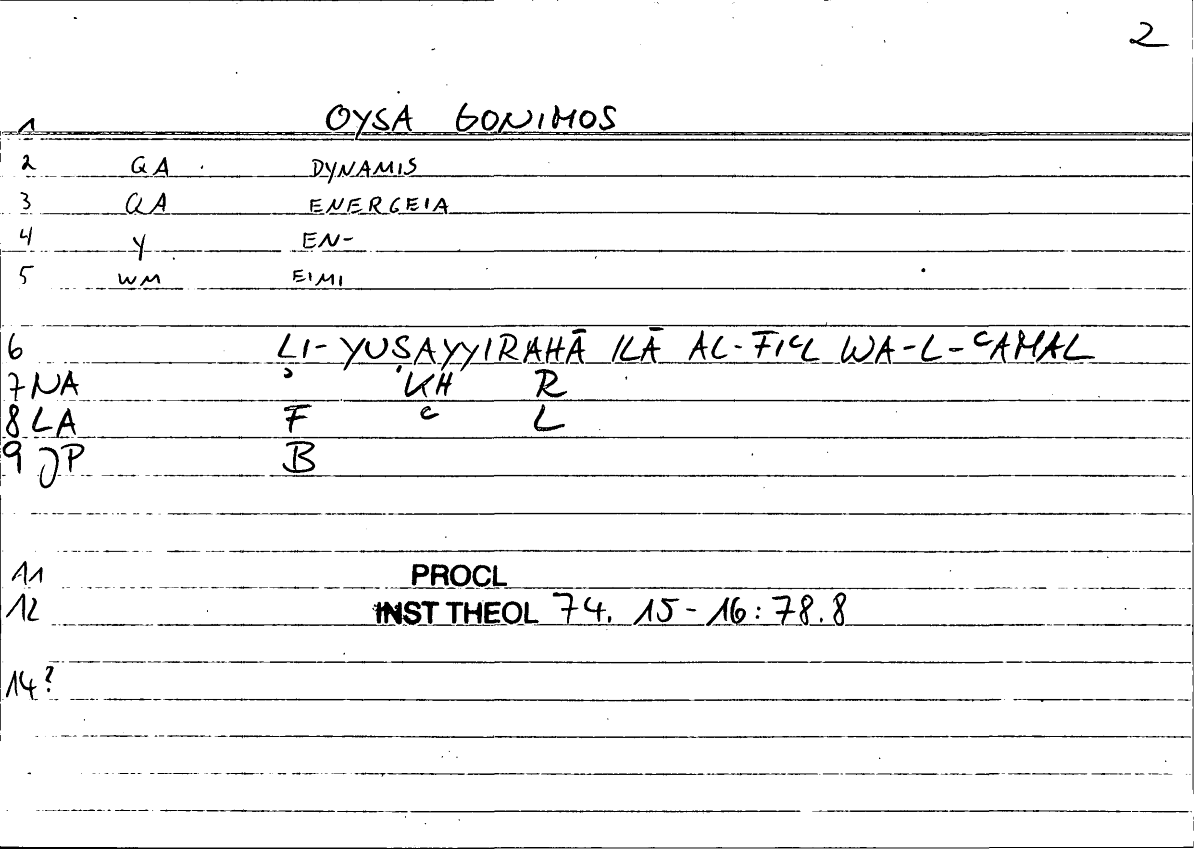 2
1 OYSA GONIMOS
2 QA DYNAMIS
3 QA ENERGEIA
4 Y EN-
5 WM EIMI
6 LI-YUṢAYYIRAHĀ ILĀ AL-FIʿL WA-L-ʿAMAL
7 NA ʾ KH R
8 LA F ʿ L
9 JP B
11 PROCL
12 INST THEOL 74. 15-16: 78.8
14?